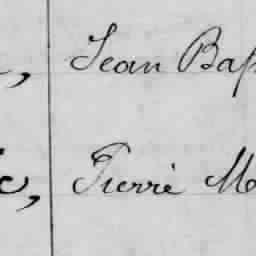 , Jean Bap
c, Pierre M